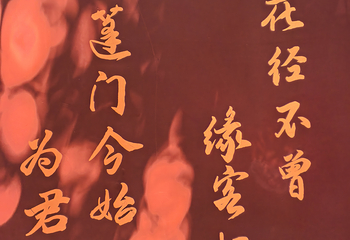 花径不曾
缘客
蓬门今始
为君